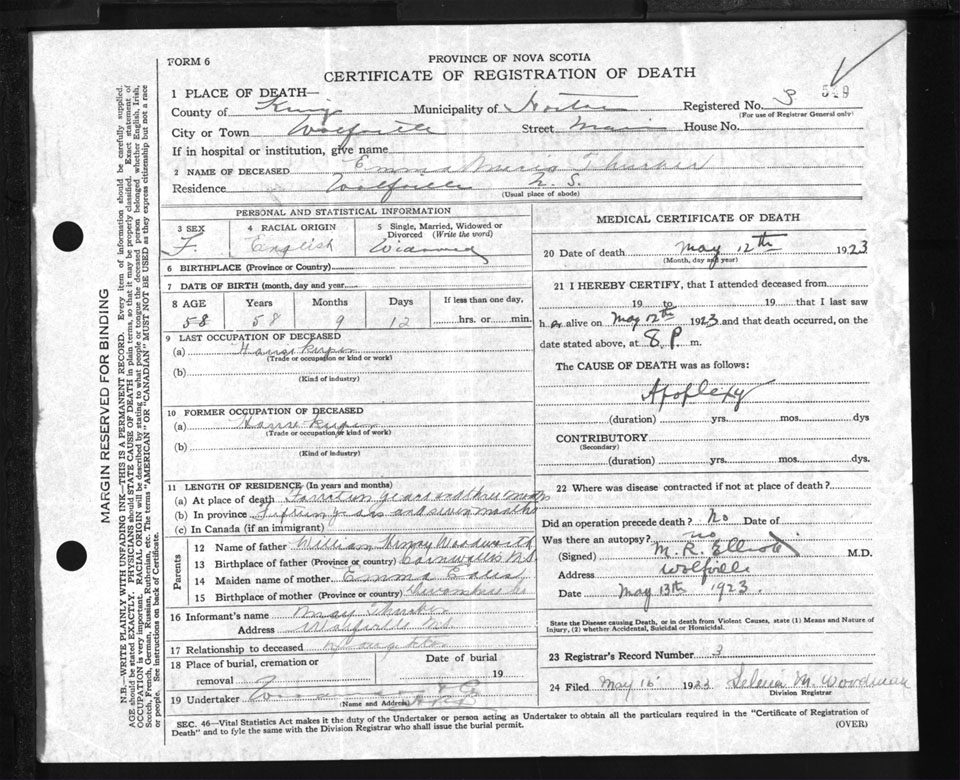 FORM 6
PROVINCE OF NOVA SCOTIA
CERTIFICATE OF REGISTRATION OF DEATH
MARGIN RESERVED FOR BINDING
N.B.—WRITE PLAINLY WITH UNFADING INK—THIS IS A PERMANENT RECORD. Every item of information should be carefully supplied.
AGE should be stated EXACTLY. PHYSICIANS should STATE CAUSE OF DEATH in plain terms, so that it may be properly classified. Exact statement of
OCCUPATION is very important. RACIAL ORIGIN will be described by stating to what people or tongue the deceased person belonged whether English, Irish,
Scotch, French, German, Russian, Ruthenian, etc. The terms "AMERICAN" OR "CANADIAN" MUST NOT BE USED as they express citizenship but not a race
or people. See instructions on back of Certificate.
1 PLACE OF DEATH—
County of Kings Municipality of Horton Registered No. 3 529
(For use of Registrar General only)
City or Town Wolfville Street Main House No.
If in hospital or institution, give name
2 NAME OF DECEASED Emma Thurber
Residence Wolfville N. S.
(Usual place of abode)
PERSONAL AND STATISTICAL INFORMATION
3 SEX F. 4 RACIAL ORIGIN English 5 Single, Married, Widowed or Divorced (Write the word) Widowed
6 BIRTHPLACE (Province or Country)
7 DATE OF BIRTH (month, day and year)
8 AGE Years Months Days If less than one day,
58 58 9 12 hrs. or min.
9 LAST OCCUPATION OF DECEASED
(a) House Keeper
(Trade or occupation or kind of work)
(b)
(Kind of industry)
10 FORMER OCCUPATION OF DECEASED
(a) House Keeper
(Trade or occupation or kind of work)
(b)
(Kind of industry)
11 LENGTH OF RESIDENCE (In years and months)
(a) At place of death years and three months
(b) In province years and seven months
(c) In Canada (if an immigrant)
Parents
12 Name of father William Henry Woodworth
13 Birthplace of father (Province or country) Cornwallis N.S.
14 Maiden name of mother Emma
15 Birthplace of mother (Province or country)
16 Informant's name May Thurber
Address Wolfville N.S.
17 Relationship to deceased Daughter
18 Place of burial, cremation or removal Date of burial 19
19 Undertaker
(Name and Address)
MEDICAL CERTIFICATE OF DEATH
20 Date of death May 12th 1923
(Month, day and year)
21 I HEREBY CERTIFY, that I attended deceased from
19 to 19 that I last saw
h er alive on May 12th 1923 and that death occurred, on
date stated above, at 8 P. m.
The CAUSE OF DEATH was as follows:
Apoplexy
(duration) yrs. mos. dys
CONTRIBUTORY
(Secondary)
(duration) yrs. mos. dys.
22 Where was disease contracted if not at place of death?
Did an operation precede death? No Date of
Was there an autopsy? no
(Signed) M. R. Elliott M.D.
Address Wolfville
Date May 13th 1923.
State the Disease causing Death, or in death from Violent Causes, state (1) Means and Nature of
Injury, (2) whether Accidental, Suicidal or Homicidal.
23 Registrar's Record Number 3
24 Filed May 16 1923 Selena M. Woodman
Division Registrar
SEC. 46—Vital Statistics Act makes it the duty of the Undertaker or person acting as Undertaker to obtain all the particulars required in the "Certificate of Registration of
Death" and to fyle the same with the Division Registrar who shall issue the burial permit. (OVER)